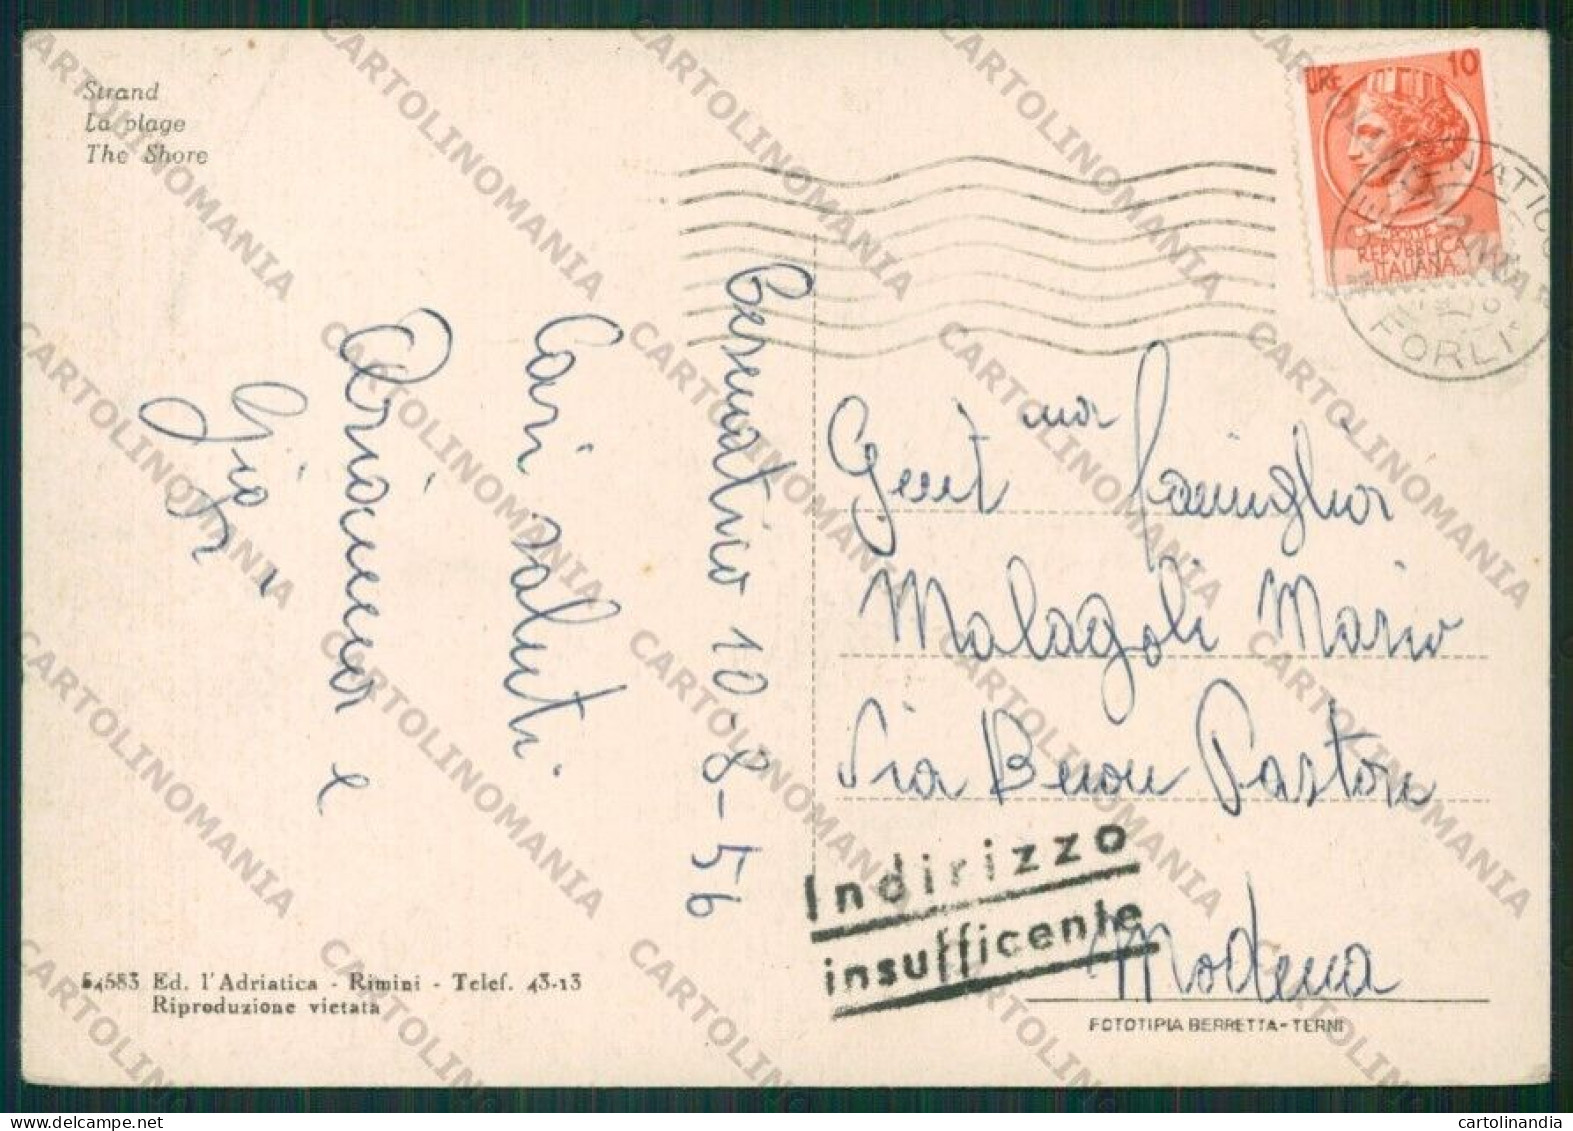 Strand
La plage
The Shore
LIRE 10
REPVBBLICA
ITALIANA
FORLI'
Cesenatico 10-8-56
Cari saluti
Arianna e
Gent ma famiglia
Malagoli Mario
Via Buon Pastore
Modena
Indirizzo
insufficente
54583 Ed. l'Adriatica - Rimini - Telef. 43-13
Riproduzione vietata
FOTOTIPIA BERRETTA-TERNI
CARTOLINOMANIA
cartolinandia